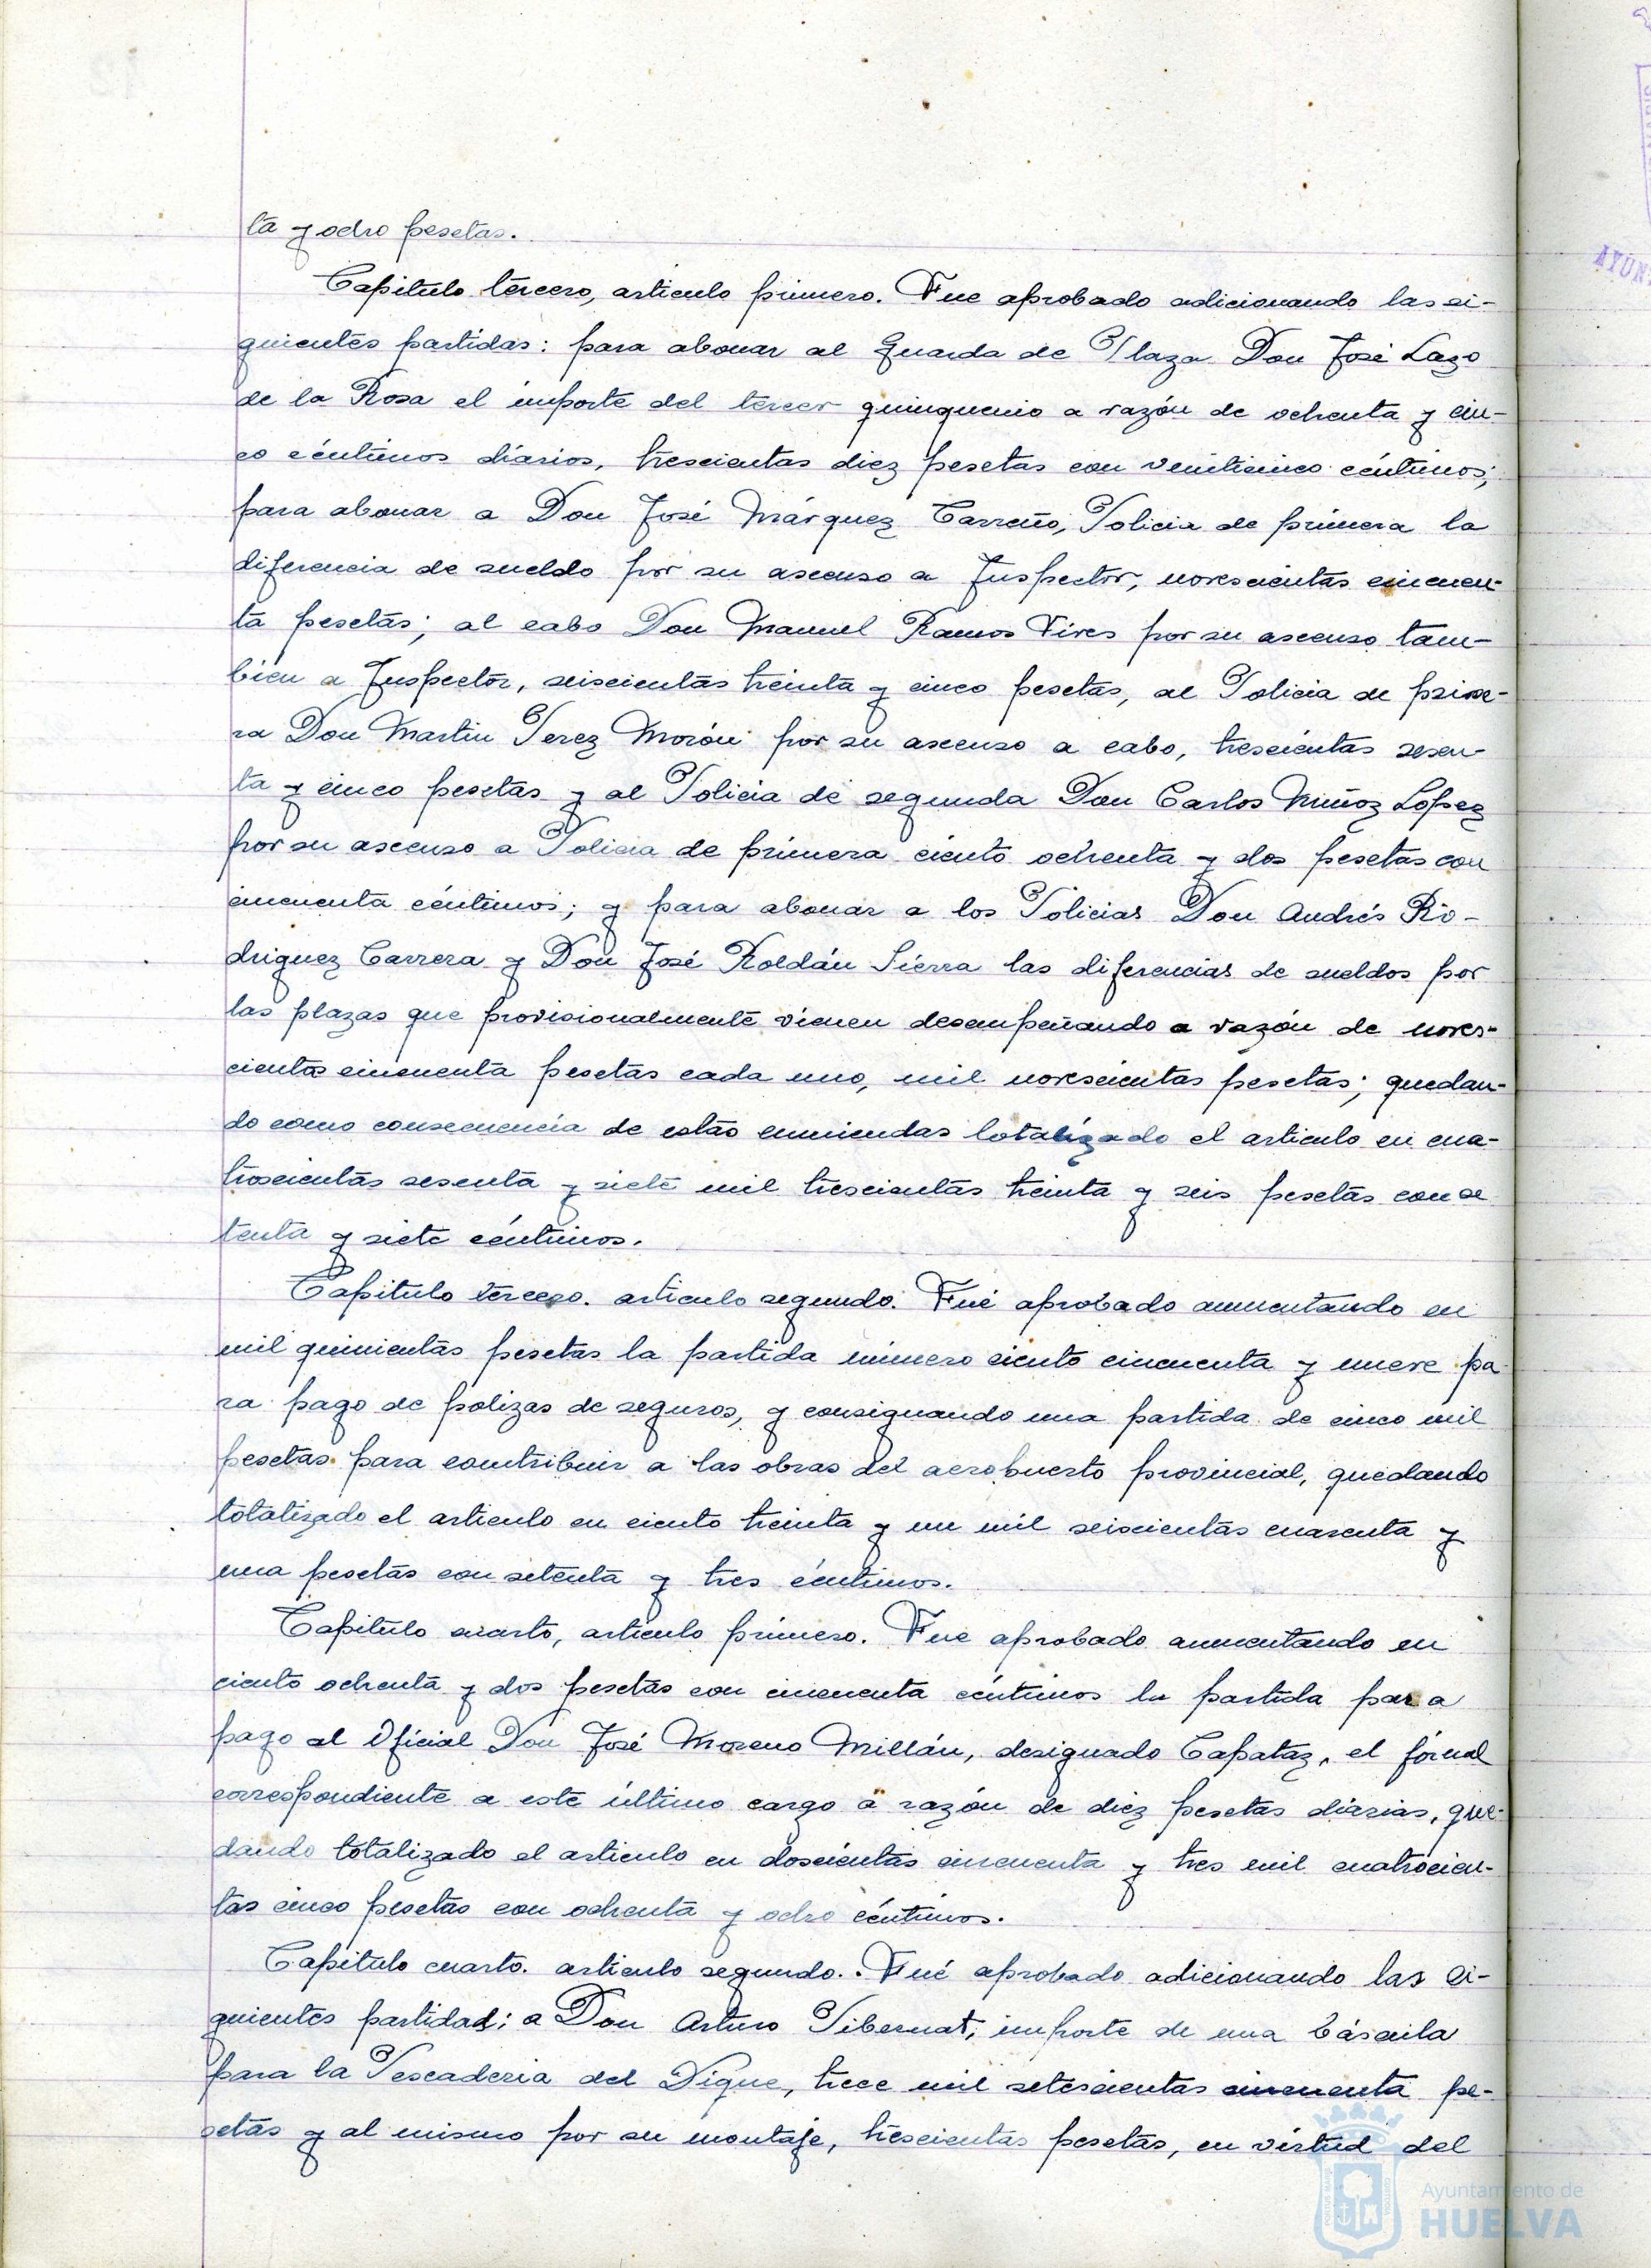 ta y ocho pesetas.
Capitulo tercero, articulo primero. Fue aprobado adicionando las si-
guientes partidas: para abonar al Guarda de Plaza Don José Lazo
de la Rosa el importe del tercer quinquenio a razón de ochenta y cin-
co céntimos diarios, trescientas diez pesetas con veinticinco céntimos;
para abonar a Don José Márquez Carreño, Policia de primera la
diferencia de sueldo por su ascenso a Inspector, novescientas cincuen-
ta pesetas; al cabo Don Manuel Ramos Vives por su ascenso tam-
bien a Inspector, seiscientas treinta y cinco pesetas, al Policia de prime-
ra Don Martin Perez Morón por su ascenso a cabo, trescientas sesen-
ta y cinco pesetas y al Policia de segunda Don Carlos Muñoz Lopez
por su ascenso a Policia de primera ciento ochenta y dos pesetas con
cincuenta céntimos; y para abonar a los Policias Don Andrés Ro-
driguez Carrera y Don José Roldán Sierra las diferencias de sueldos por
las plazas que provisionalmente vienen desempeñando a razón de noves-
cientas cincuenta pesetas cada uno, mil novescientas pesetas; quedan-
do como consecuencia de estas enmiendas totalizado el articulo en cua-
troscientas sesenta y siete mil trescientas treinta y seis pesetas con se
tenta y siete céntimos.
Capitulo tercero. articulo segundo. Fué aprobado aumentando en
mil quinientas pesetas la partida número ciento cincuenta y nueve pa
ra pago de polizas de seguros, y consignando una partida de cinco mil
pesetas para contribuir a las obras del aeropuerto provincial, quedando
totalizado el articulo en ciento treinta y un mil seiscientas cuarenta y
una pesetas con setenta y tres céntimos.
Capitulo cuarto, articulo primero. Fue aprobado aumentando en
ciento ochenta y dos pesetas con cincuenta céntimos la partida para
pago al Oficial Don José Moreno Millán, designado Capataz, el jórnal
correspondiente a este último cargo a razón de diez pesetas diarias, que-
dando totalizado el articulo en doscientas cincuenta y tres mil cuatrocien-
tas cinco pesetas con ochenta y ocho céntimos.
Capitulo cuarto. articulo segundo. Fué aprobado adicionando las si-
guientes partidas; a Don Arturo Pibernat, importe de una báscula
para la Pescaderia del Dique, trece mil setescientas cincuenta pe-
setas y al mismo por su montaje, trescientas pesetas, en virtud del
Ayuntamiento de
HUELVA